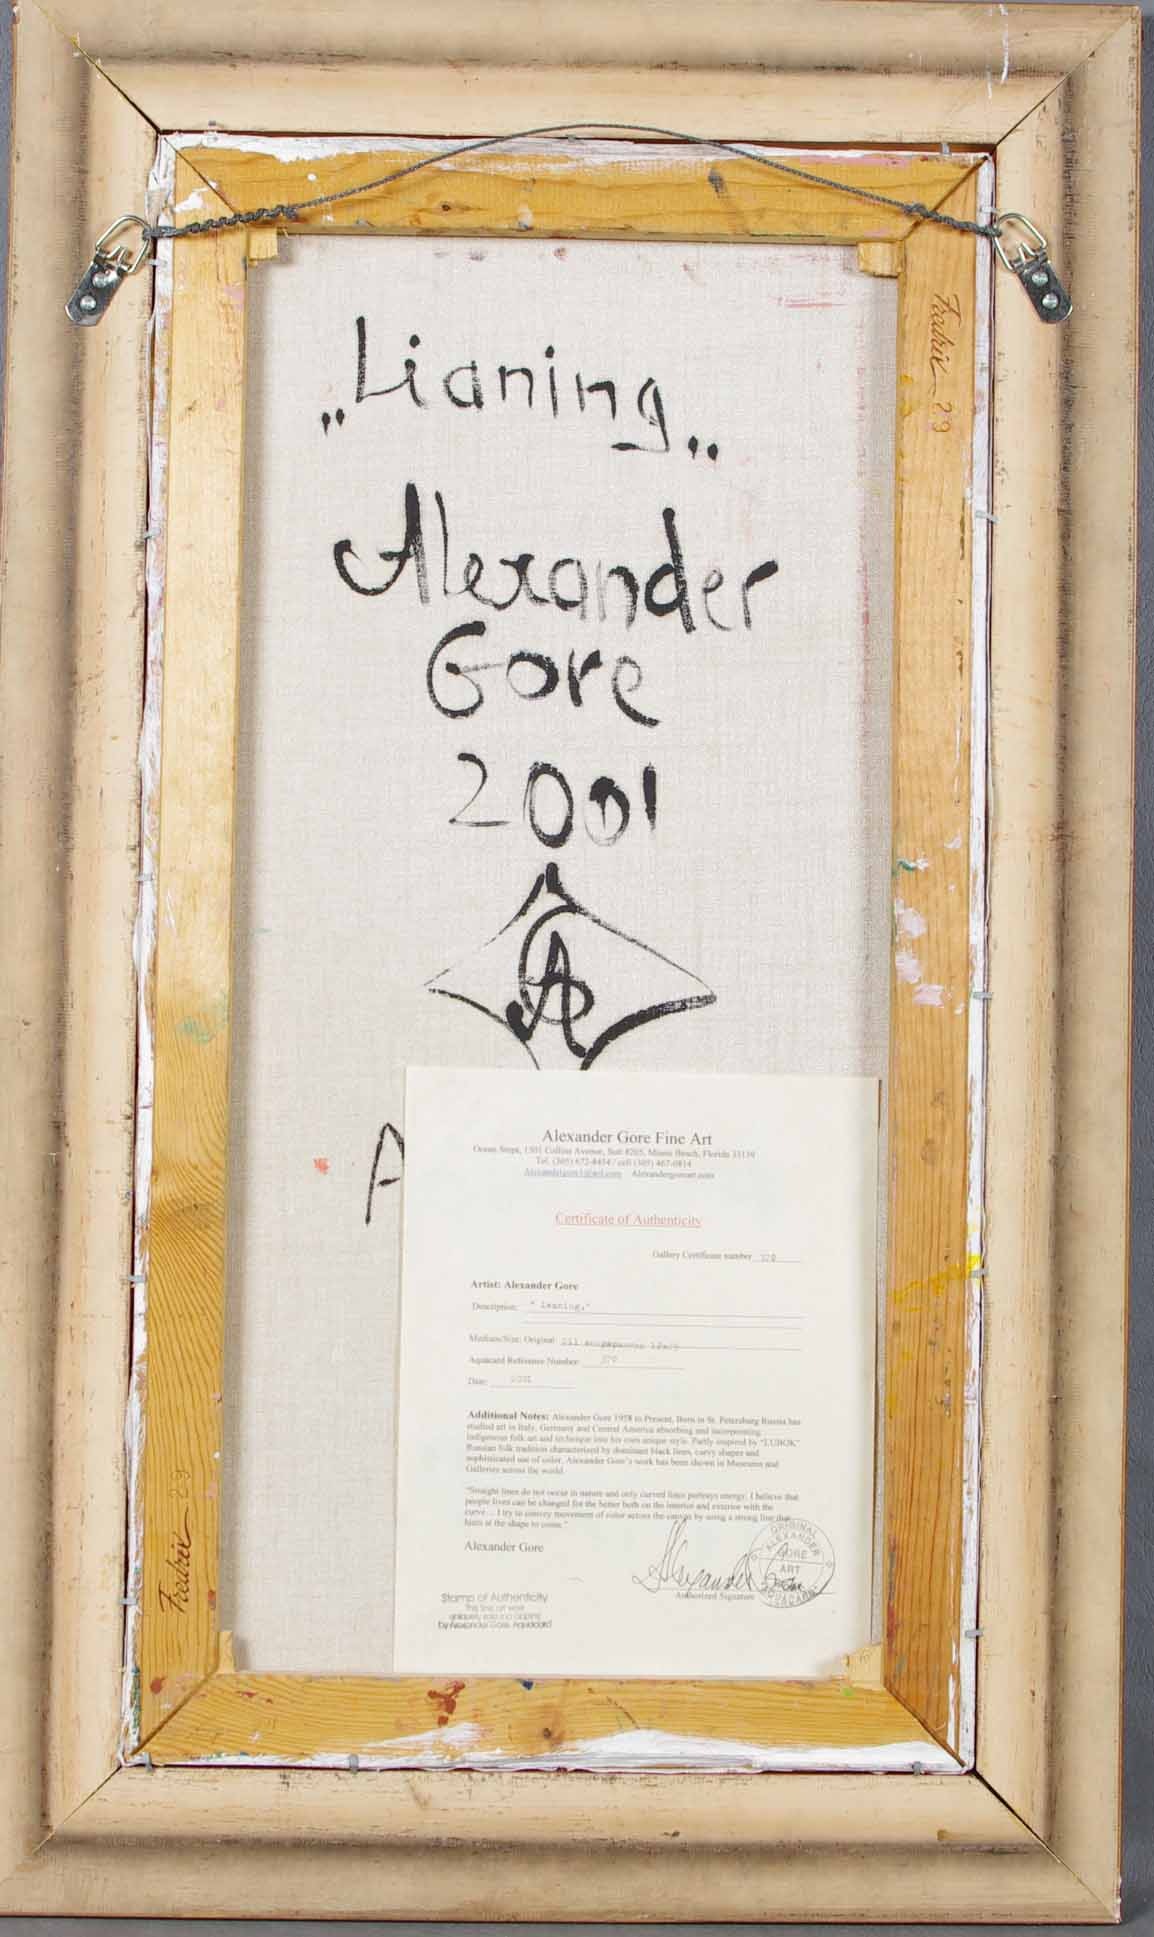 „Lianing„
Alexander
Gore
2001
AG
A
Fredrix 29
Fredrix 29
Alexander Gore Fine Art
Ocean Steps, 1501 Collins Avenue, Suit #205, Miami Beach, Florida 33139
Tel. (305) 672-8454 / cell (305) 467-0814
Alexandergoreart.com
Certificate of Authenticity
Gallery Certificate number
Artist: Alexander Gore
Description: " Leaning,"
Medium/Size: Original
Aquacard Reference Number
Date: 2001
Additional Notes: Alexander Gore 1958 to Present, Born in St. Petersburg Russia has
studied art in Italy, Germany and Central America absorbing and incorporating
Indigenous folk art and technique into his own unique style. Partly inspired by "LUBOK"
Russian folk tradition characterized by dominant black lines, curvy shapes and
sophisticated use of color. Alexander Gore's work has been shown in Museums and
Galleries across the world.
"Straight lines do not occur in nature and only curved lines portrays energy. I believe that
people lives can be changed for the better both on the interior and exterior with the
curve... I try to convey movement of color across the canvas by using a strong line that
hints at the shape to come."
Alexander Gore
Alexander Gore
Authorized Signature
ORIGINAL
ALEXANDER
GORE
ART
AQUACARD
Stamp of Authenticity
This fine art work
by Alexander Gore, Aquacard